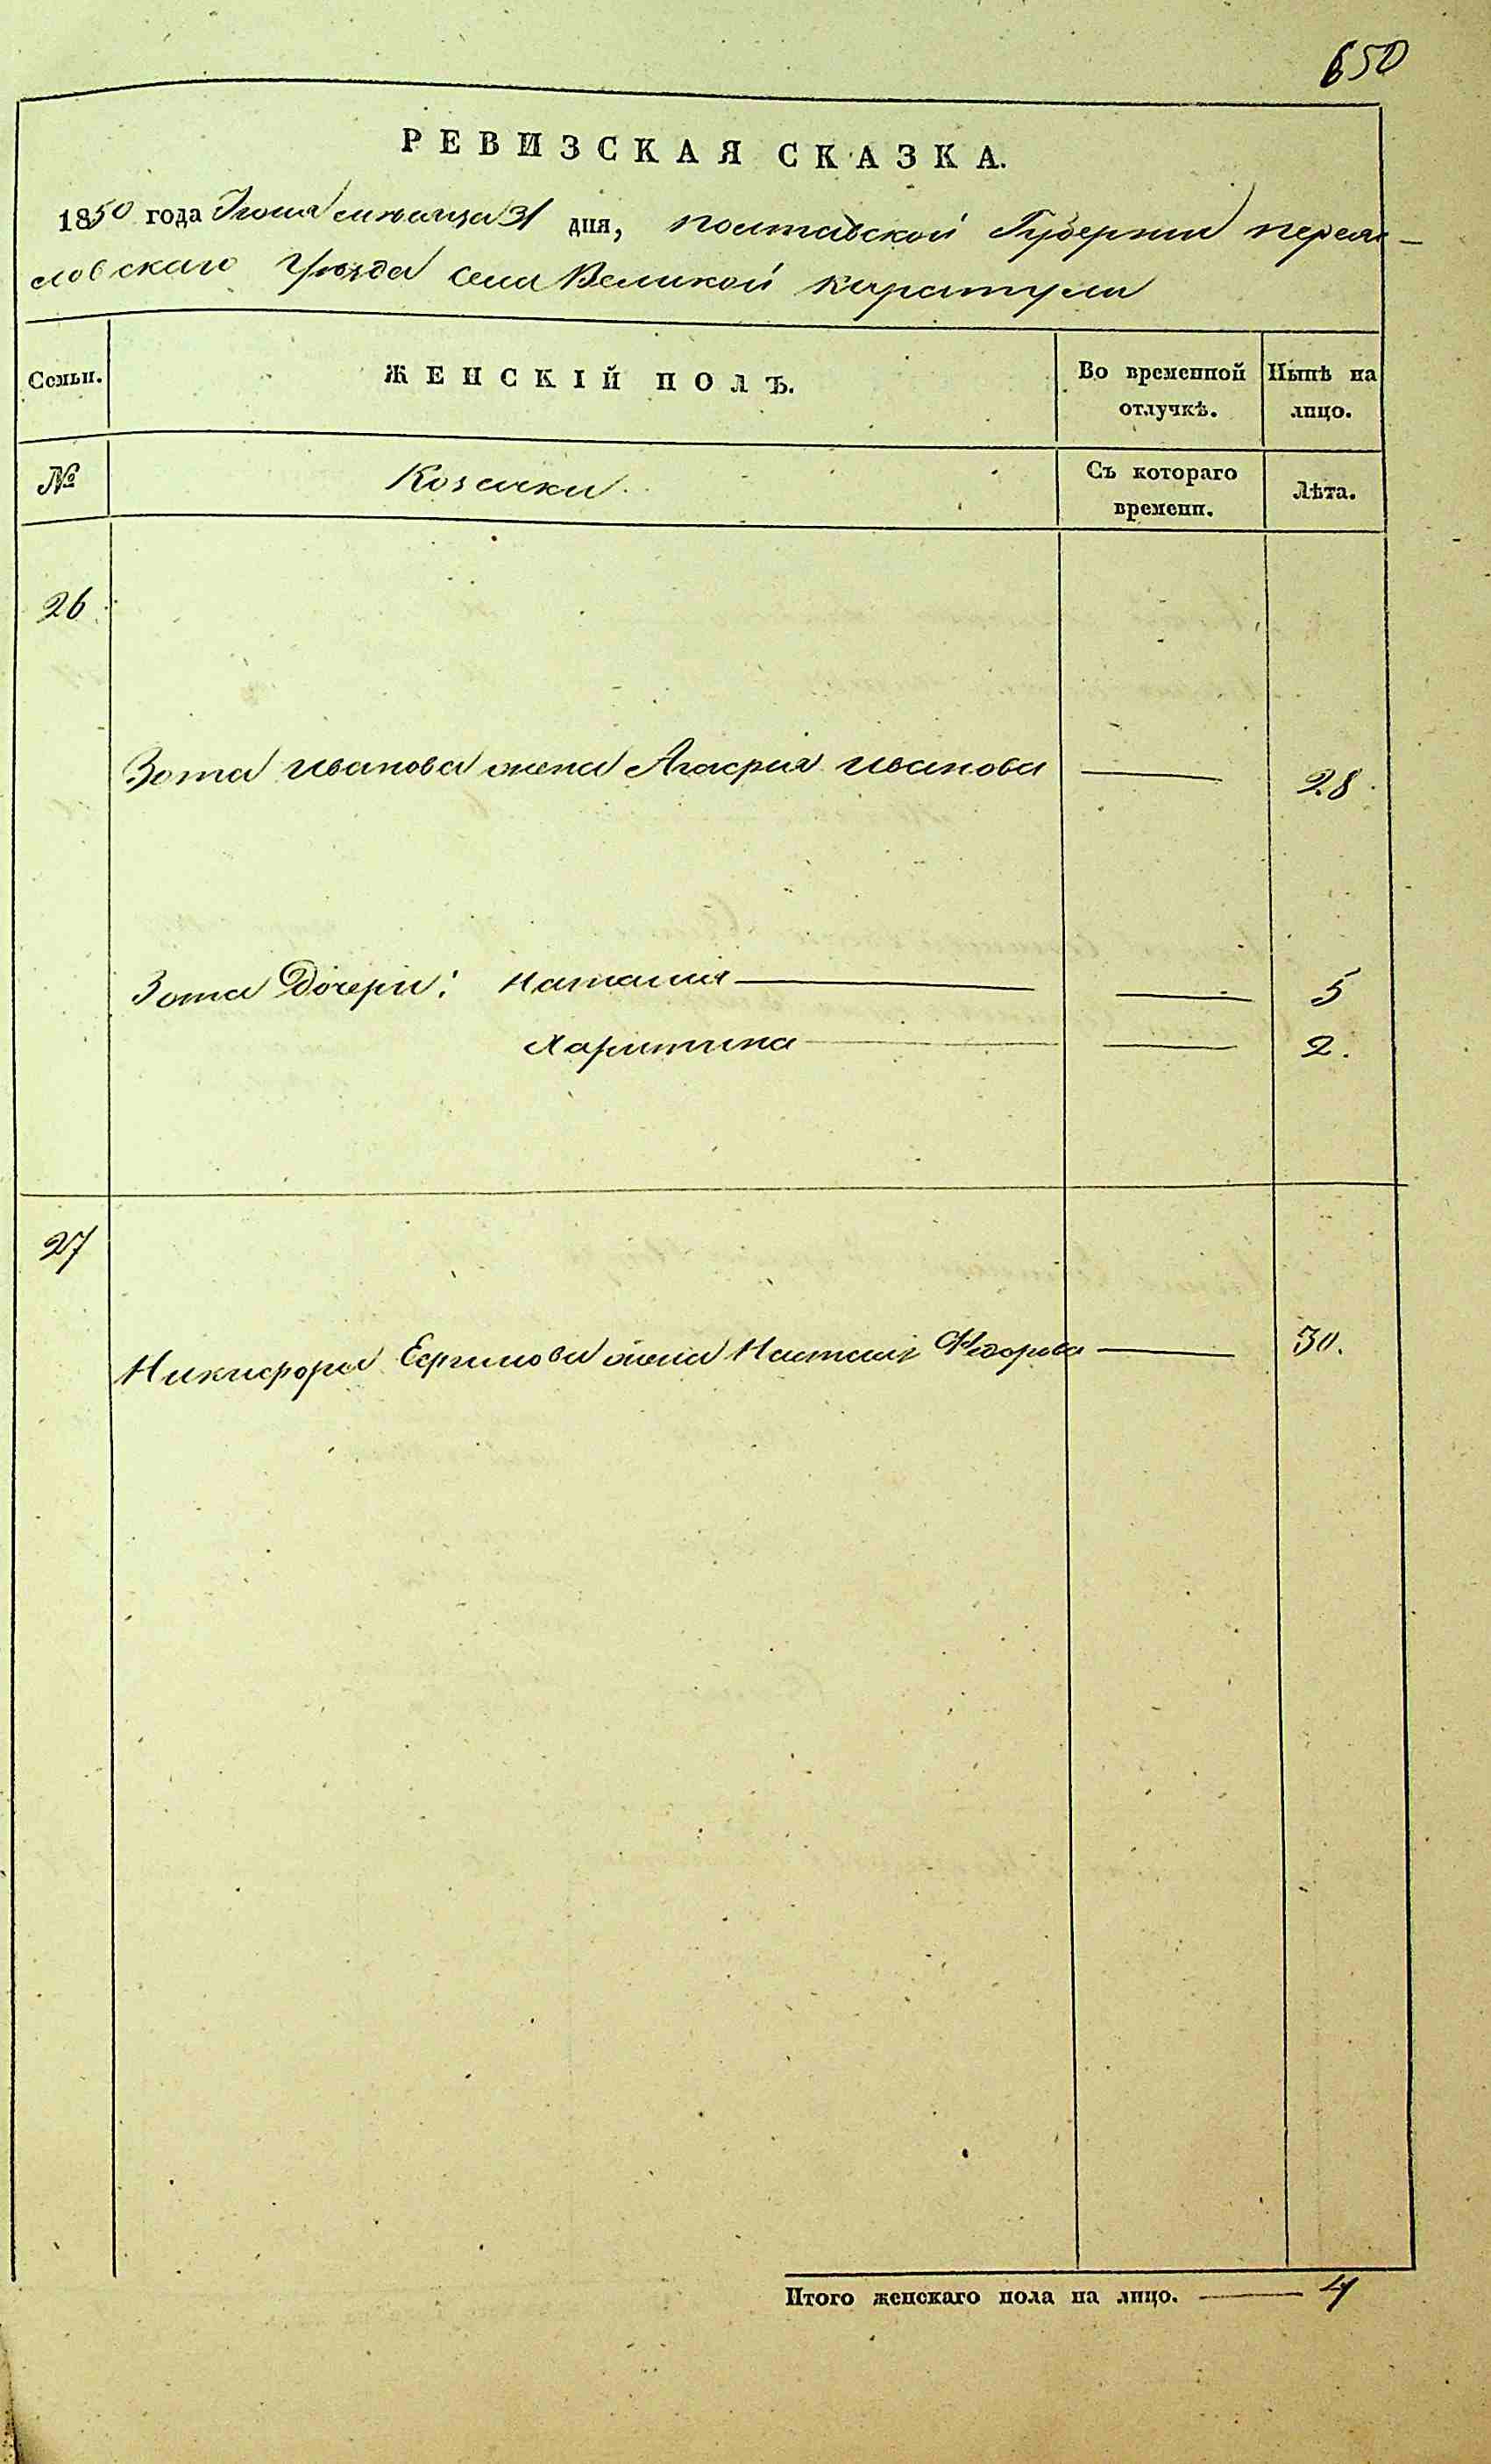 650
РЕВИЗСКАЯ СКАЗКА.
1850 года Июля мѣсяца 31 дня, полтавской Губерніи переяс-
ловскаго Уѣзда села Великой каратули
Семьи. ЖЕНСКІЙ ПОЛЪ. Во временной отлучкѣ. Нынѣ на лицо.
№ Козачки. Съ котораго времени. Лѣта.
26.
Зота иванова жена Агафия иванова — 28.
Зота Дочери: наталия — — 5
харитина — — 2.
27
Никифора Ефимова жена Наталія Федорова — 30.
Итого женскаго пола на лицо. — 4